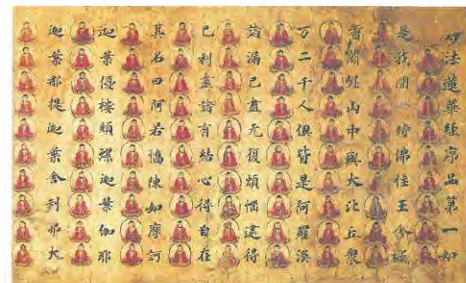 妙法蓮華經序品第一如
是我聞一時佛住王舍城
耆闍崛山中與大比丘衆
万二千人俱皆是阿羅漢
諸漏已盡无復煩惱逮得
己利盡諸有結心得自在
其名曰阿若憍陳如摩訶
迦葉優樓頻螺迦葉伽耶
迦葉那提迦葉舍利弗大